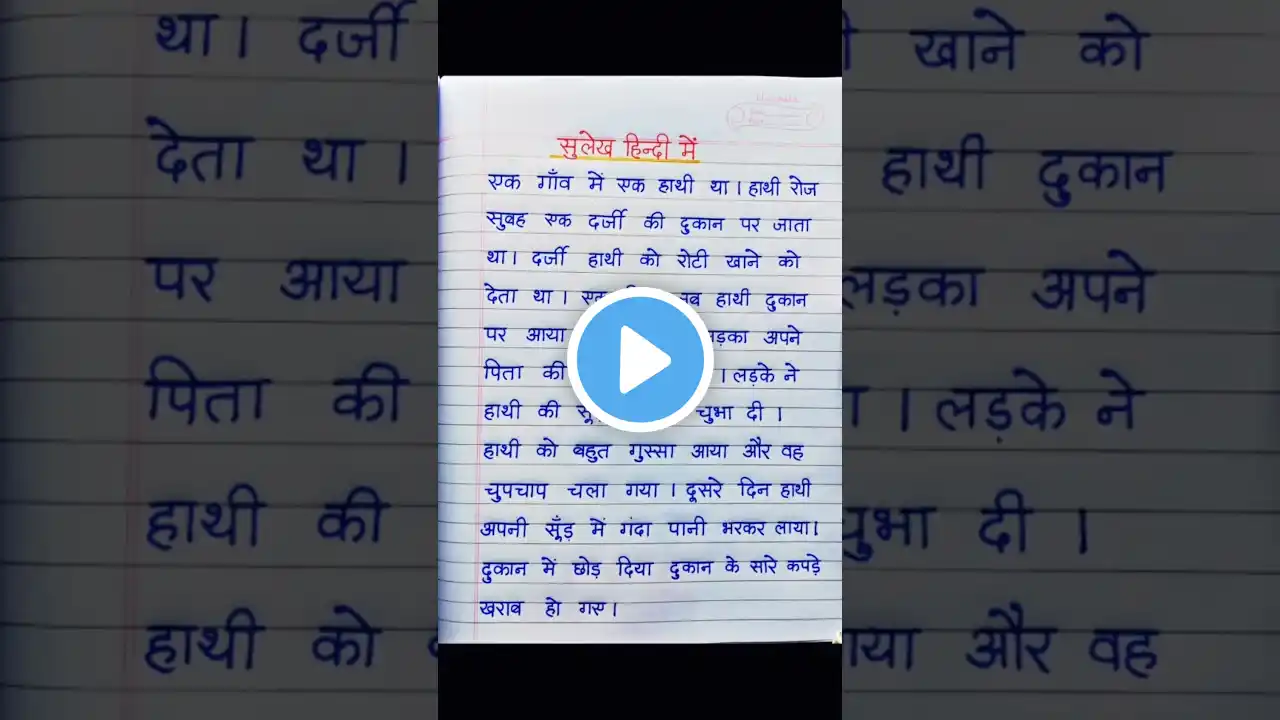 सुलेख हिन्दी में
एक गाँव में एक हाथी था। हाथी रोज
सुबह एक दर्जी की दुकान पर जाता
था। दर्जी हाथी को रोटी खाने को
देता था। एक हाथी दुकान
पर आया लड़का अपने
पिता की । लड़के ने
हाथी की चुभा दी ।
हाथी को बहुत गुस्सा आया और वह
चुपचाप चला गया । दूसरे दिन हाथी
अपनी सूँड़ में गंदा पानी भरकर लाया।
दुकान में छोड़ दिया दुकान के सारे कपड़े
खराब हो गए।